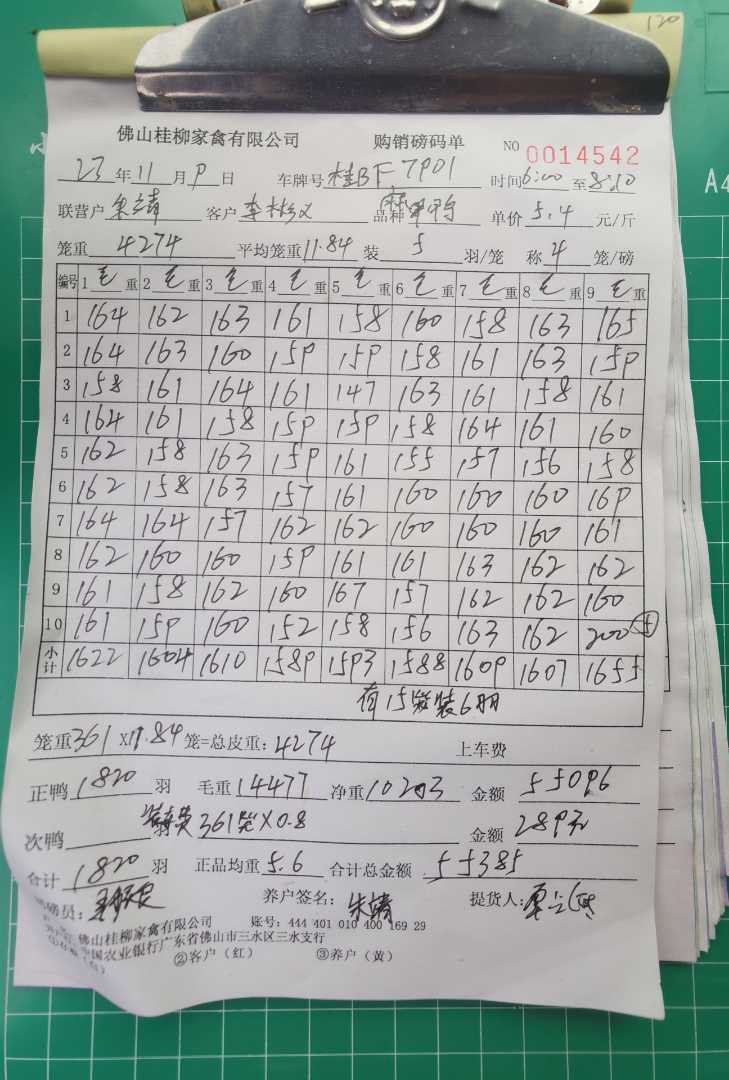 120
佛山桂柳家禽有限公司 购销磅码单 NO 0014542
23 年 11 月 9 日 车牌号 桂BF7901 时间 6:00 至 8:10
联营户 朱靖 客户 李彬文 品种 单价 5.4 元/斤
笼重 4274 平均笼重 11.84 装 5 羽/笼 称 4 笼/磅
编号 1 毛 重 2 毛 重 3 毛 重 4 毛 重 5 毛 重 6 毛 重 7 毛 重 8 毛 重 9 毛 重
1 164 162 163 161 158 160 158 163 165
2 164 163 160 159 159 158 161 163 159
3 158 161 164 161 147 163 161 158 161
4 164 161 158 159 159 158 164 161 160
5 162 158 163 159 161 155 157 156 158
6 162 158 163 157 161 160 160 160 169
7 164 164 157 162 162 160 160 160 161
8 162 160 160 159 161 161 163 162 162
9 161 158 162 160 167 157 162 162 160
10 161 159 160 152 158 156 163 162 200 ⑤
小计 1622 1604 1610 1589 1593 1588 1609 1607 1655
有15笼装6羽
笼重 361 X 11.84 笼=总皮重: 4274 上车费
正鸭 1820 羽 毛重 14477 净重 10203 金额 55096
次鸭 装车费 361笼X0.8 金额 289元
合计 1820 羽 正品均重 5.6 合计总金额 55385
磅员: 养户签名: 朱靖 提货人:
佛山桂柳家禽有限公司 账号: 444 401 010 400 169 29
中国农业银行广东省佛山市三水区三水支行
②客户（红） ③养户（黄）
A4